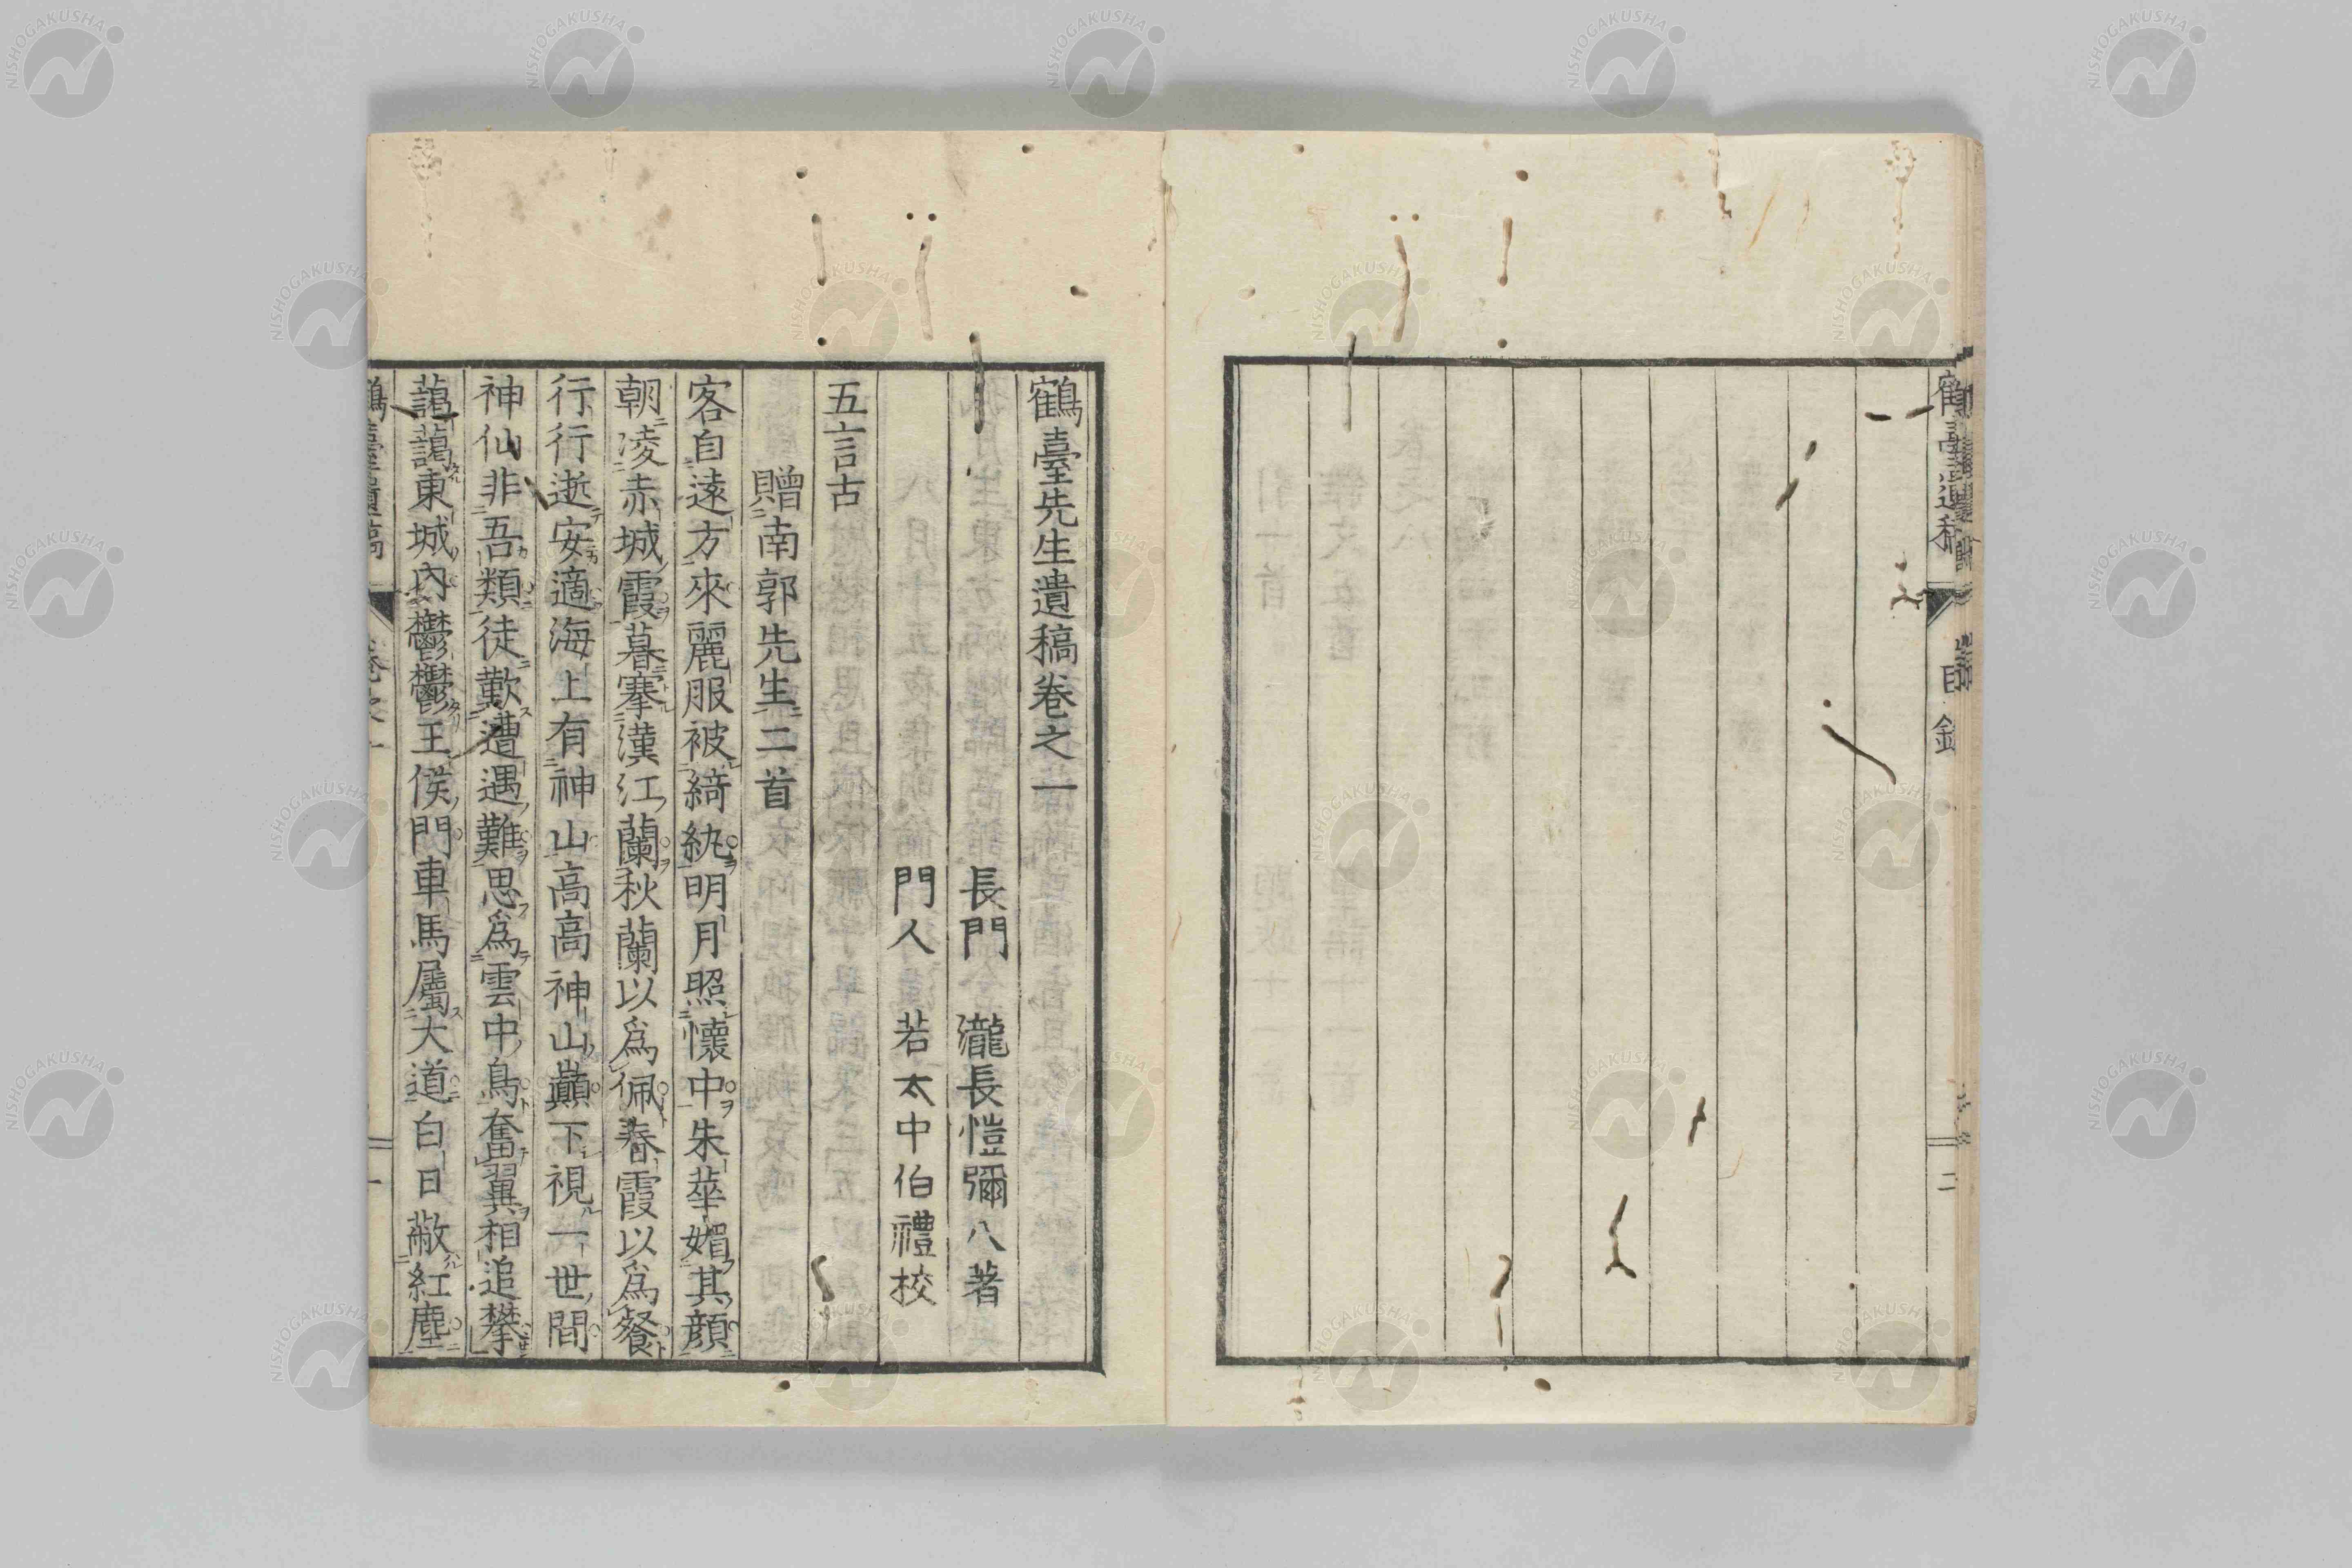 鶴臺遺稿
目錄
二
鶴臺先生遺稿卷之一
長門 瀧長愷彌八著
門人 若太中伯禮校
五言古
贈南郭先生二首
客自遠方來麗服被綺紈明月照懷中朱華媚其顏
朝凌赤城霞暮搴漢江蘭秋蘭以爲佩春霞以爲餐
行行逝安適海上有神山高高神山巔下視一世間
神仙非吾類徒歎遭遇難思爲雲中鳥奮翼相追攀
藹藹東城內鬱鬱王侯門車馬屬大道白日蔽紅塵
鶴臺遺稿 卷之一 一
NISHOGAKUSHA